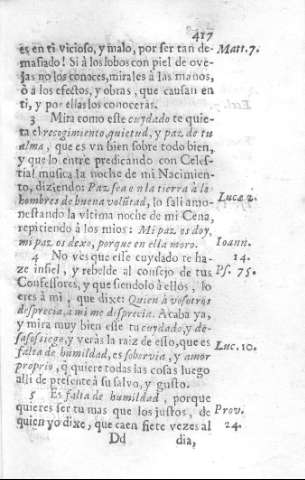 417
es en ti vicioso, y malo, por ser tan de- Matt. 7.
masiado! Si à los lobos con piel de ove-
jas no los conoces, mirales à las manos,
ò à los efectos, y obras, que causan en
ti, y por ellas los conoceràs.
3 Mira como este cuydado te quie-
ta el recogimiento, quietud, y paz de tu
alma, que es vn bien sobre todo bien,
y que lo entre predicando con Celes-
tial musica la noche de mi Nacimien-
to, diziendo: Paz sea en la tierra à los
hombres de buena volũtad, lo sali amo- Lucæ 2.
nestando la vltima noche de mi Cena,
repitiendo à los mios: Mi paz os doy,
mi paz os dexo, porque en ella moro. Ioann.
4 No ves que este cuydado te ha- 14.
ze infiel, y rebelde al consejo de tus Ps. 75.
Confessores, y que siendolo à ellos, lo
eres à mi, que dixe: Quien à vosotros
desprecia, à mi me desprecia. Acaba ya,
y mira muy bien este tu cuydado, y de-
sasosiego, y veràs la raiz de esso, que es
falta de humildad, es sobervia, y amor Luc. 10.
proprio, q̃ quiere todas las cosas luego
alli de presente à su salvo, y gusto.
5 Es falta de humildad, porque
quieres ser tu mas que los justos, de Prov.
quien yo dixe, que caen siete vezes al 24.
Dd dia,